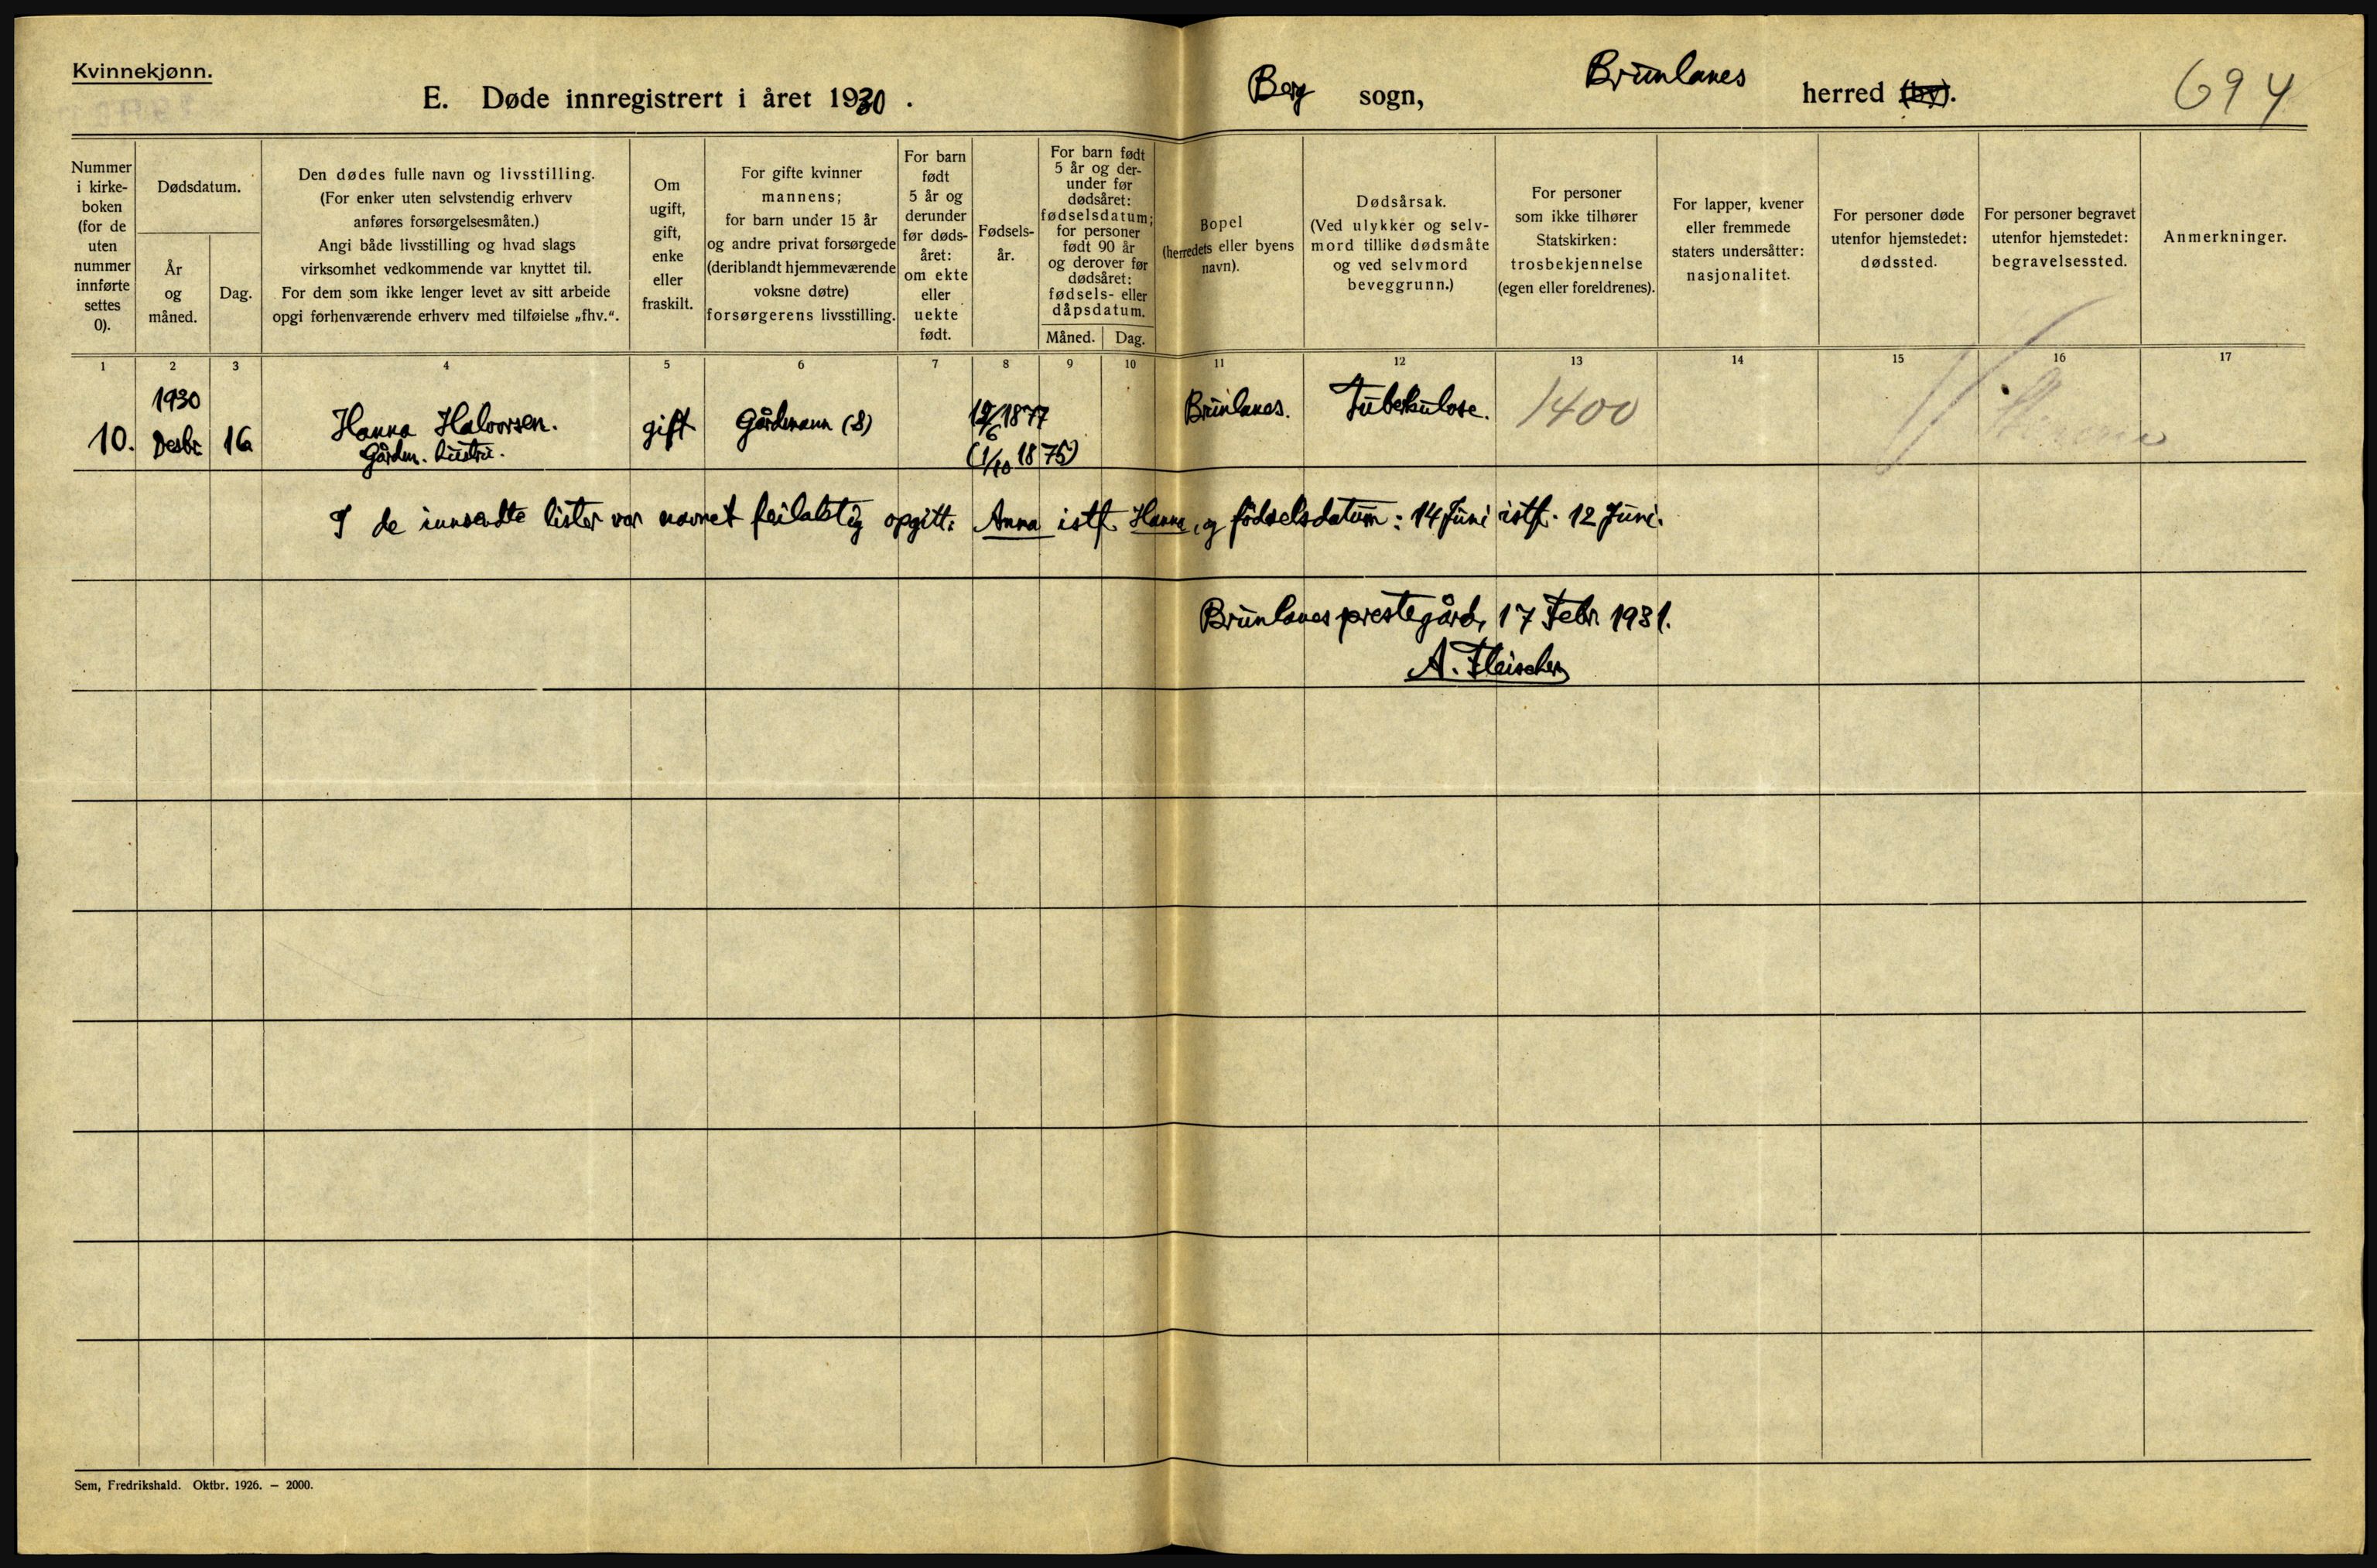 Kvinnekjønn.
E. Døde innregistrert i året 1930.
Berg sogn, Brunlanes herred (by).
694
Nummer
i kirke-
boken
(for de
uten
nummer
innførte
settes
0).
Dødsdatum.
År
og
måned.
Dag.
Den dødes fulle navn og livsstilling.
(For enker uten selvstendig erhverv
anføres forsørgelsesmåten.)
Angi både livsstilling og hvad slags
virksomhet vedkommende var knyttet til.
For dem som ikke lenger levet av sitt arbeide
opgi førhenværende erhverv med tilføielse „fhv.“.
Om
ugift,
gift,
enke
eller
fraskilt.
For gifte kvinner
mannens;
for barn under 15 år
og andre privat forsørgede
(deriblandt hjemmeværende
voksne døtre)
forsørgerens livsstilling.
For barn
født
5 år og
derunder
før døds-
året:
om ekte
eller
uekte
født.
Fødsels-
år.
For barn født
5 år og der-
under før
dødsåret:
fødselsdatum;
for personer
født 90 år
og derover før
dødsåret:
fødsels- eller
dåpsdatum.
Måned.
Dag.
Bopel
(herredets eller byens
navn).
Dødsårsak.
(Ved ulykker og selv-
mord tillike dødsmåte
og ved selvmord
beveggrunn.)
For personer
som ikke tilhører
Statskirken:
trosbekjennelse
(egen eller foreldrenes).
For lapper, kvener
eller fremmede
staters undersåtter:
nasjonalitet.
For personer døde
utenfor hjemstedet:
dødssted.
For personer begravet
utenfor hjemstedet:
begravelsessted.
Anmerkninger.
1 2 3 4 5 6 7 8 9 10 11 12 13 14 15 16 17
1930
10. Desbr. 16 Hanna Halvorsen. gift Gårdmann (S) 12/6 1877 Brunlanes. Tuberkulose. 1400
Gårdm. hustru. (1/10 1875)
I de innsendte lister var navnet feilaktig opgitt: Anna istf. Hanna, og fødselsdatum: 14 Juni istf. 12 Juni.
Brunlanes prestegård, 17 Febr. 1931.
A. Fleischer
Sem, Fredrikshald. Oktbr. 1926. — 2000.